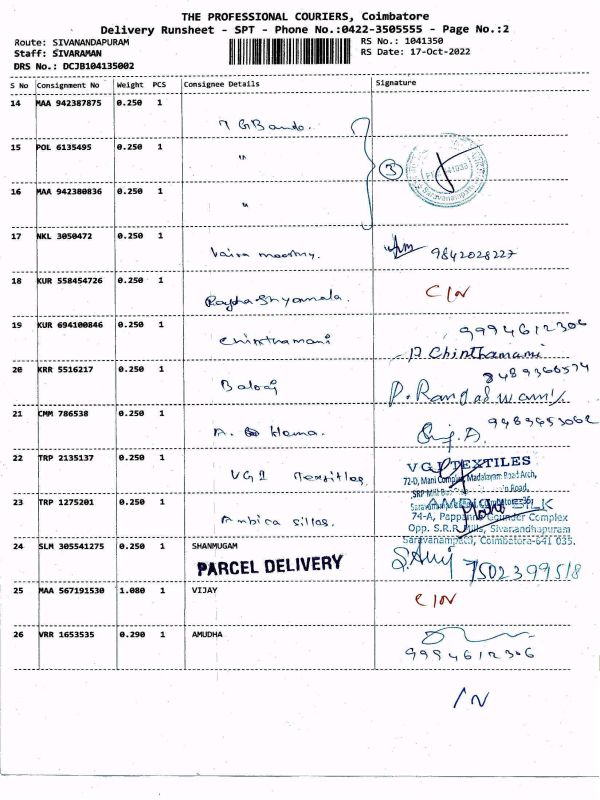 THE PROFESSIONAL COURIERS, Coimbatore
Delivery Runsheet - SPT - Phone No.:0422-3505555 - Page No.:2
Route: SIVANANDAPURAM
RS No.: 1041350
Staff: SIVARAMAN
RS Date: 17-Oct-2022
DRS No.: DCJB104135002
S No Consignment No Weight PCS Consignee Details Signature
14 MAA 942387875 0.250 1
15 POL 6135495 0.250 1 "
3
16 MAA 942380836 0.250 1 "
Saravanampatti
17 NKL 3050472 0.250 1 Vaira moorthy. 9842028227
18 KUR 558454726 0.250 1 Radha Shyamala. C/N
19 KUR 694100846 0.250 1 Chinthamani 9994612306
P. Chinthamani
20 KRR 5516217 0.250 1 Balaji 8489366574
P. Rangaswami
21 CMM 786538 0.250 1 A. Hema.
22 TRP 2135137 0.250 1 VGI Textiles
VGI TEXTILES
72-D, Mani Complex, Madalayam Road Arch,
23 TRP 1275201 0.250 1 Ambica silks.
74-A, Pappanna Gounder Complex
Opp. S.R.R Mills, Sivanandhapuram
Saravanampatti, Coimbatore-641 035.
24 SLM 305541275 0.250 1 SHANMUGAM
PARCEL DELIVERY
7502399518
25 MAA 567191530 1.080 1 VIJAY C/N
26 VRR 1653535 0.290 1 AMUDHA
9994612306
/N